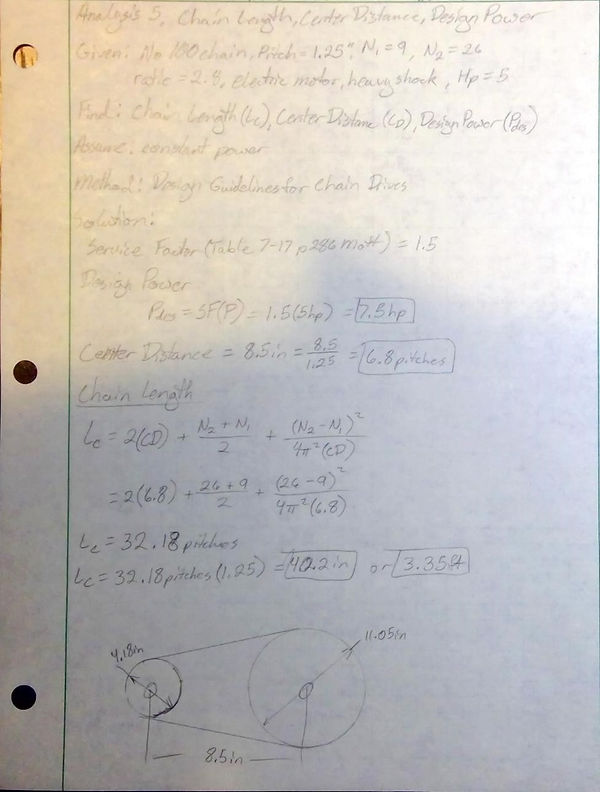 Analysis 5, Chain Length, Center Distance, Design Power
Given: No 100 chain, Pitch = 1.25", N₁ = 9, N₂ = 26
ratio = 2.8, electric motor, heavy shock, Hp = 5
Find: Chain Length (Lc), Center Distance (CD), Design Power (Pdes)
Assume: constant power
Method: Design Guidelines for Chain Drives
Solution:
Service Factor (Table 7-17 p286 Mott) = 1.5
Design Power
Pdes = SF(P) = 1.5(5hp) = 7.5hp
Center Distance = 8.5in = 8.5/1.25 = 6.8 pitches
Chain Length
Lc = 2(CD) + (N₂ + N₁)/2 + (N₂ - N₁)²/4π²(CD)
= 2(6.8) + (26 + 9)/2 + (26 - 9)²/4π²(6.8)
Lc = 32.18 pitches
Lc = 32.18 pitches (1.25) = 40.2in or 3.35ft
4.18in
11.05in
8.5in